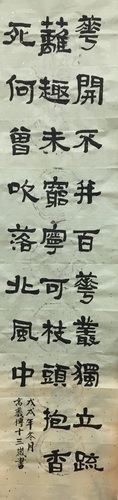 華開不并百華叢獨立疏
蘺趣未窮寧可枝頭抱香
死何曾吹落北風中
戊戌年冬月
高義博十三歲書